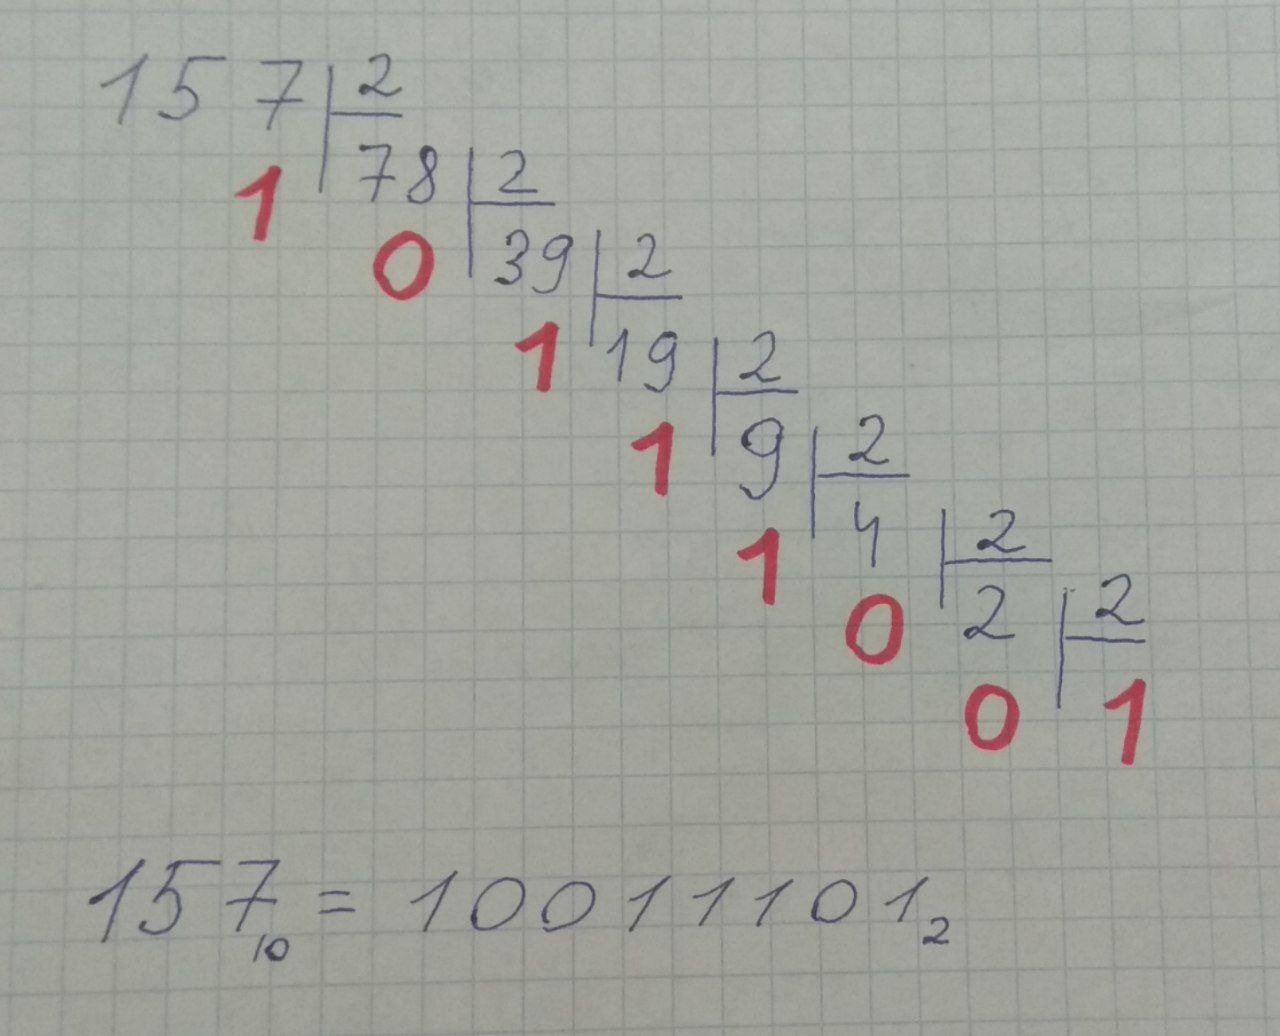 157 2
1 78 2
0 39 2
1 19 2
1 9 2
1 4 2
0 2 2
0 1
157₁₀ = 10011101₂